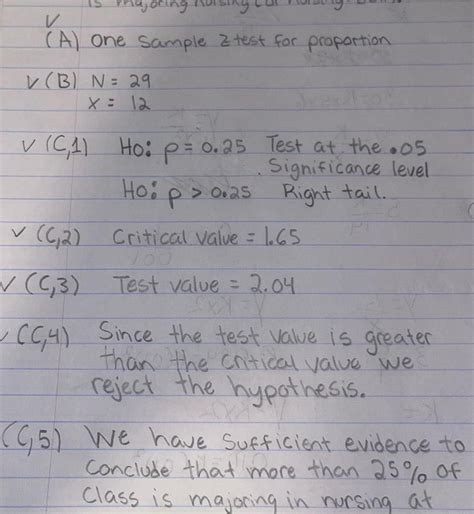 is majoring nursing
V
(A) One Sample Z test for proportion
V (B) N = 29
X = 12
V (C,1) Ho: p = 0.25 Test at the .05
Significance level
Ho: p > 0.25 Right tail.
V (C,2) Critical value = 1.65
V (C,3) Test value = 2.04
V (C,4) Since the test value is greater
than the critical value we
reject the hypothesis.
(C,5) We have sufficient evidence to
Conclude that more than 25% of
Class is majoring in nursing at